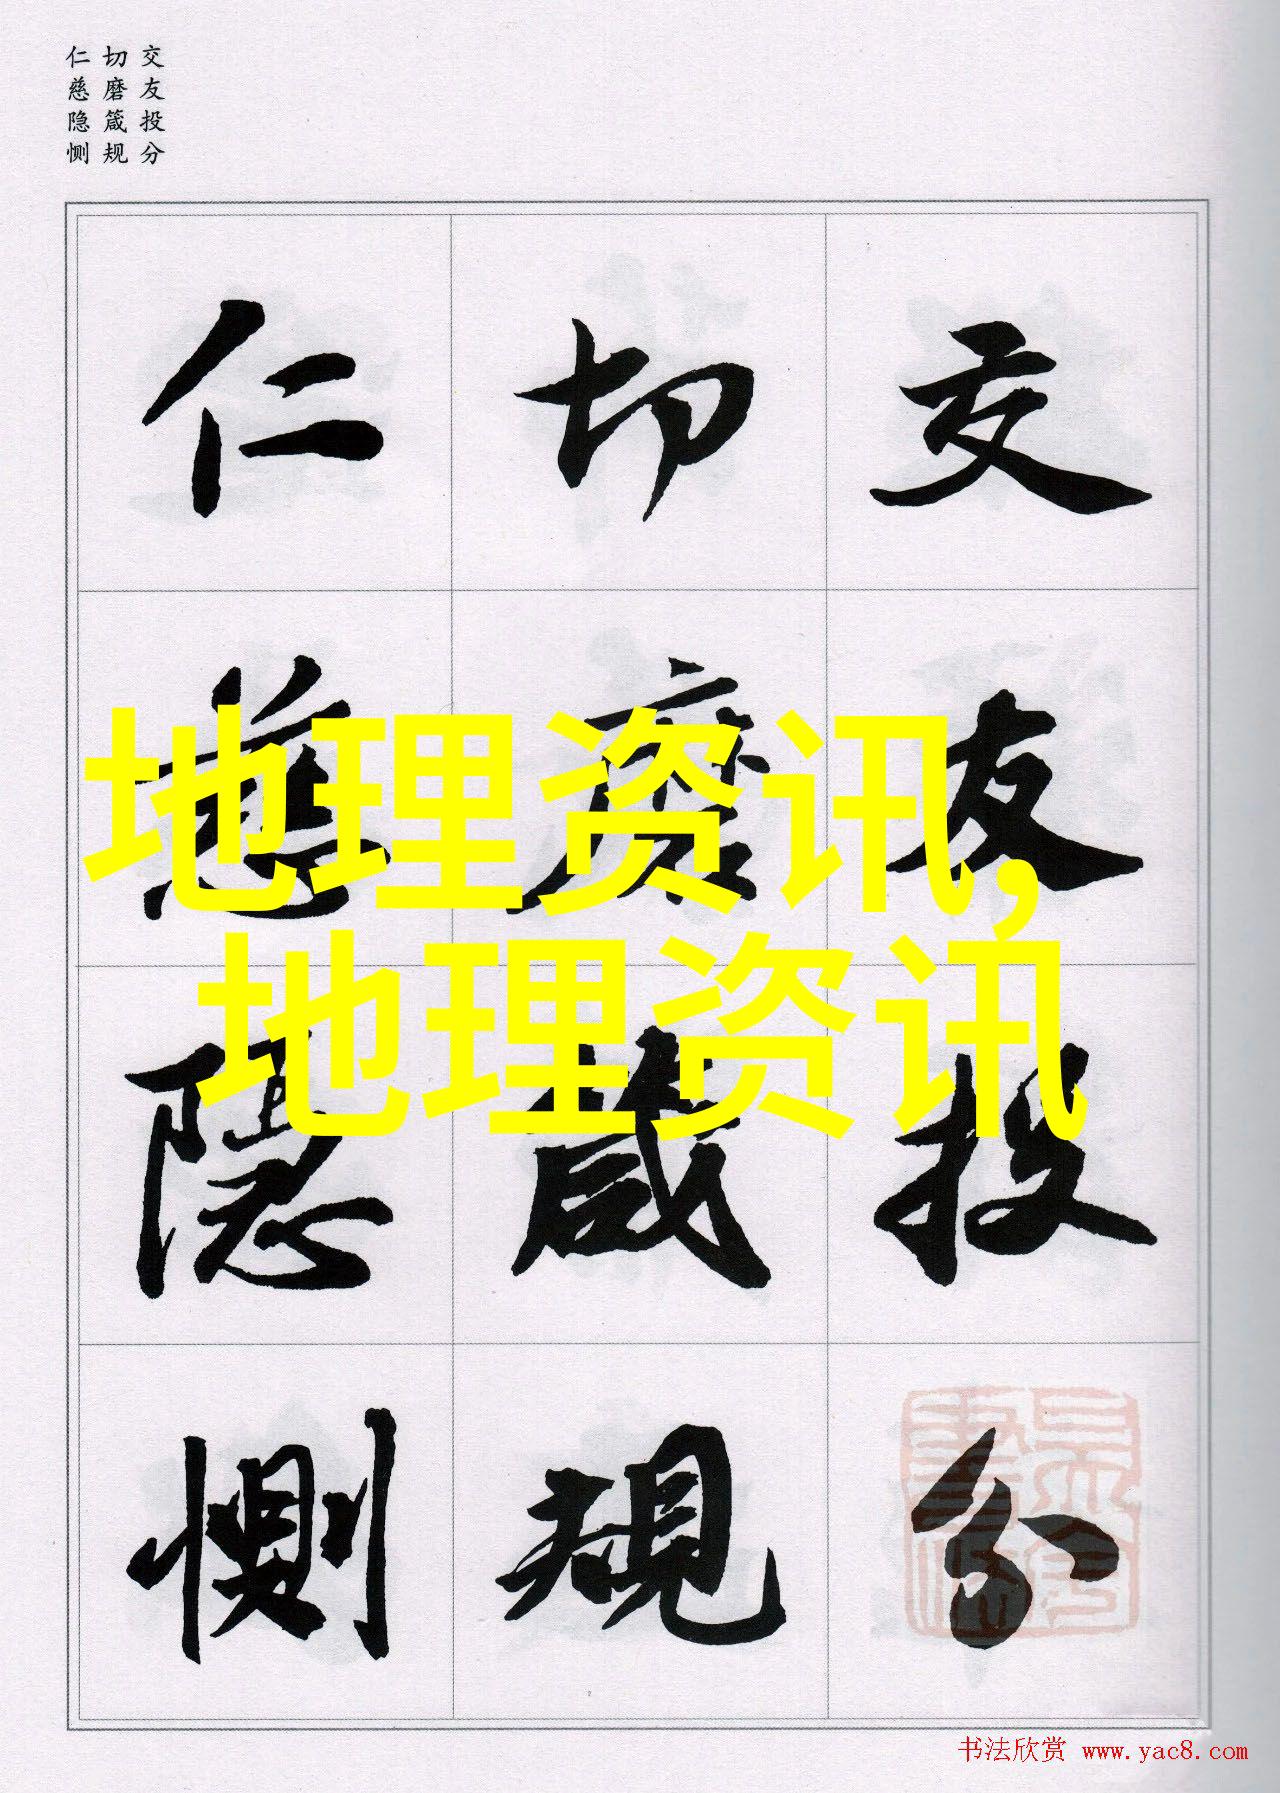 交友投分
切磨箴规
仁慈隐恻
交友投分
切磨箴規
仁慈隐恻
地理资讯,
地理资讯
书法欣赏 www.yac8.com